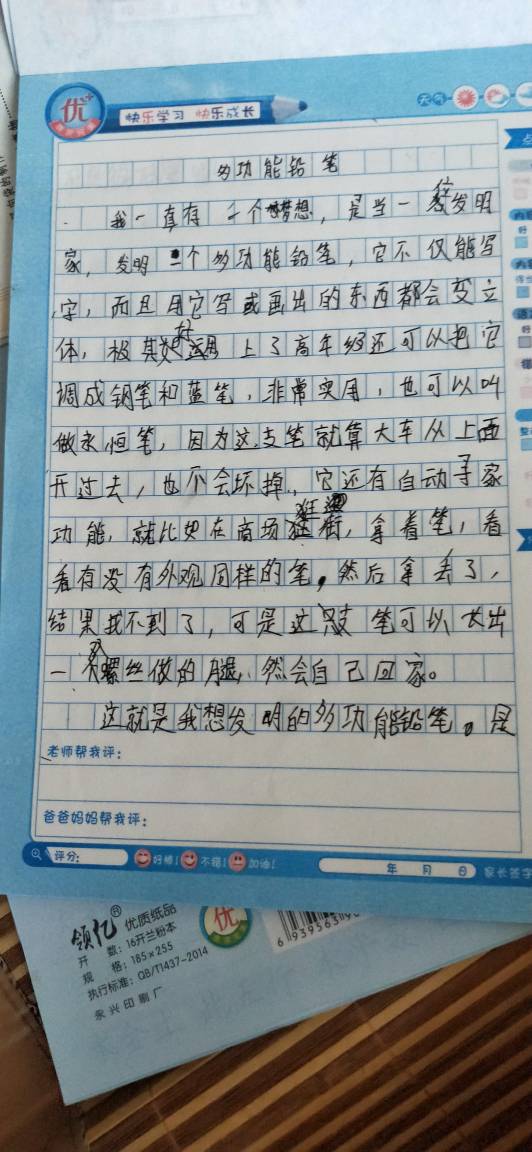 优+
快乐学习 快乐成长
天气
多功能铅笔
我一直有一个梦想，是当一位发明
家，发明一个多功能铅笔，它不仅能写
字，而且用它写或画出的东西都会变立
体，极其好用 上了高年级还可以把它
调成钢笔和蓝笔，非常实用，也可以叫
做永恒笔，因为这支笔就算大车从上面
开过去，也不会坏掉，它还有自动寻家
功能，就比如在商场逛街，拿着笔，看
看有没有外观同样的笔，然后拿丢了，
结果找不到了，可是这支笔可以长出
一双螺丝做的腿，然会自己回家。
这就是我想发明的多功能铅笔。是
老师帮我评：
爸爸妈妈帮我评：
评分：
好棒！
不错！
加油！
年 月 日
家长签字
领亿®
优质纸品
优
开 数：16开兰粉本
规 格：185×255
执行标准：QB/T1437-2014
永兴印刷厂